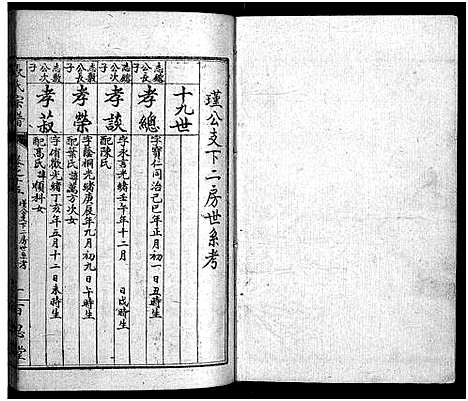 瑾公支下二房世系考
十九世
志鎔公長子
孝總
字寶仁同治己巳年正月初一日丑時生
志鎔公次子
孝談
字永言光緒壬午年十二月 日戌時生
配陳氏
志數公長子
孝榮
字蔭桐光緒庚辰年九月初九日午時生
配葉氏諱萬方次女
志數公次子
孝菽
字侑歡光緒丁亥年五月十二日未時生
配高氏諱順科女
氏宗譜
瑾公支下二房世系考
一
百忍堂